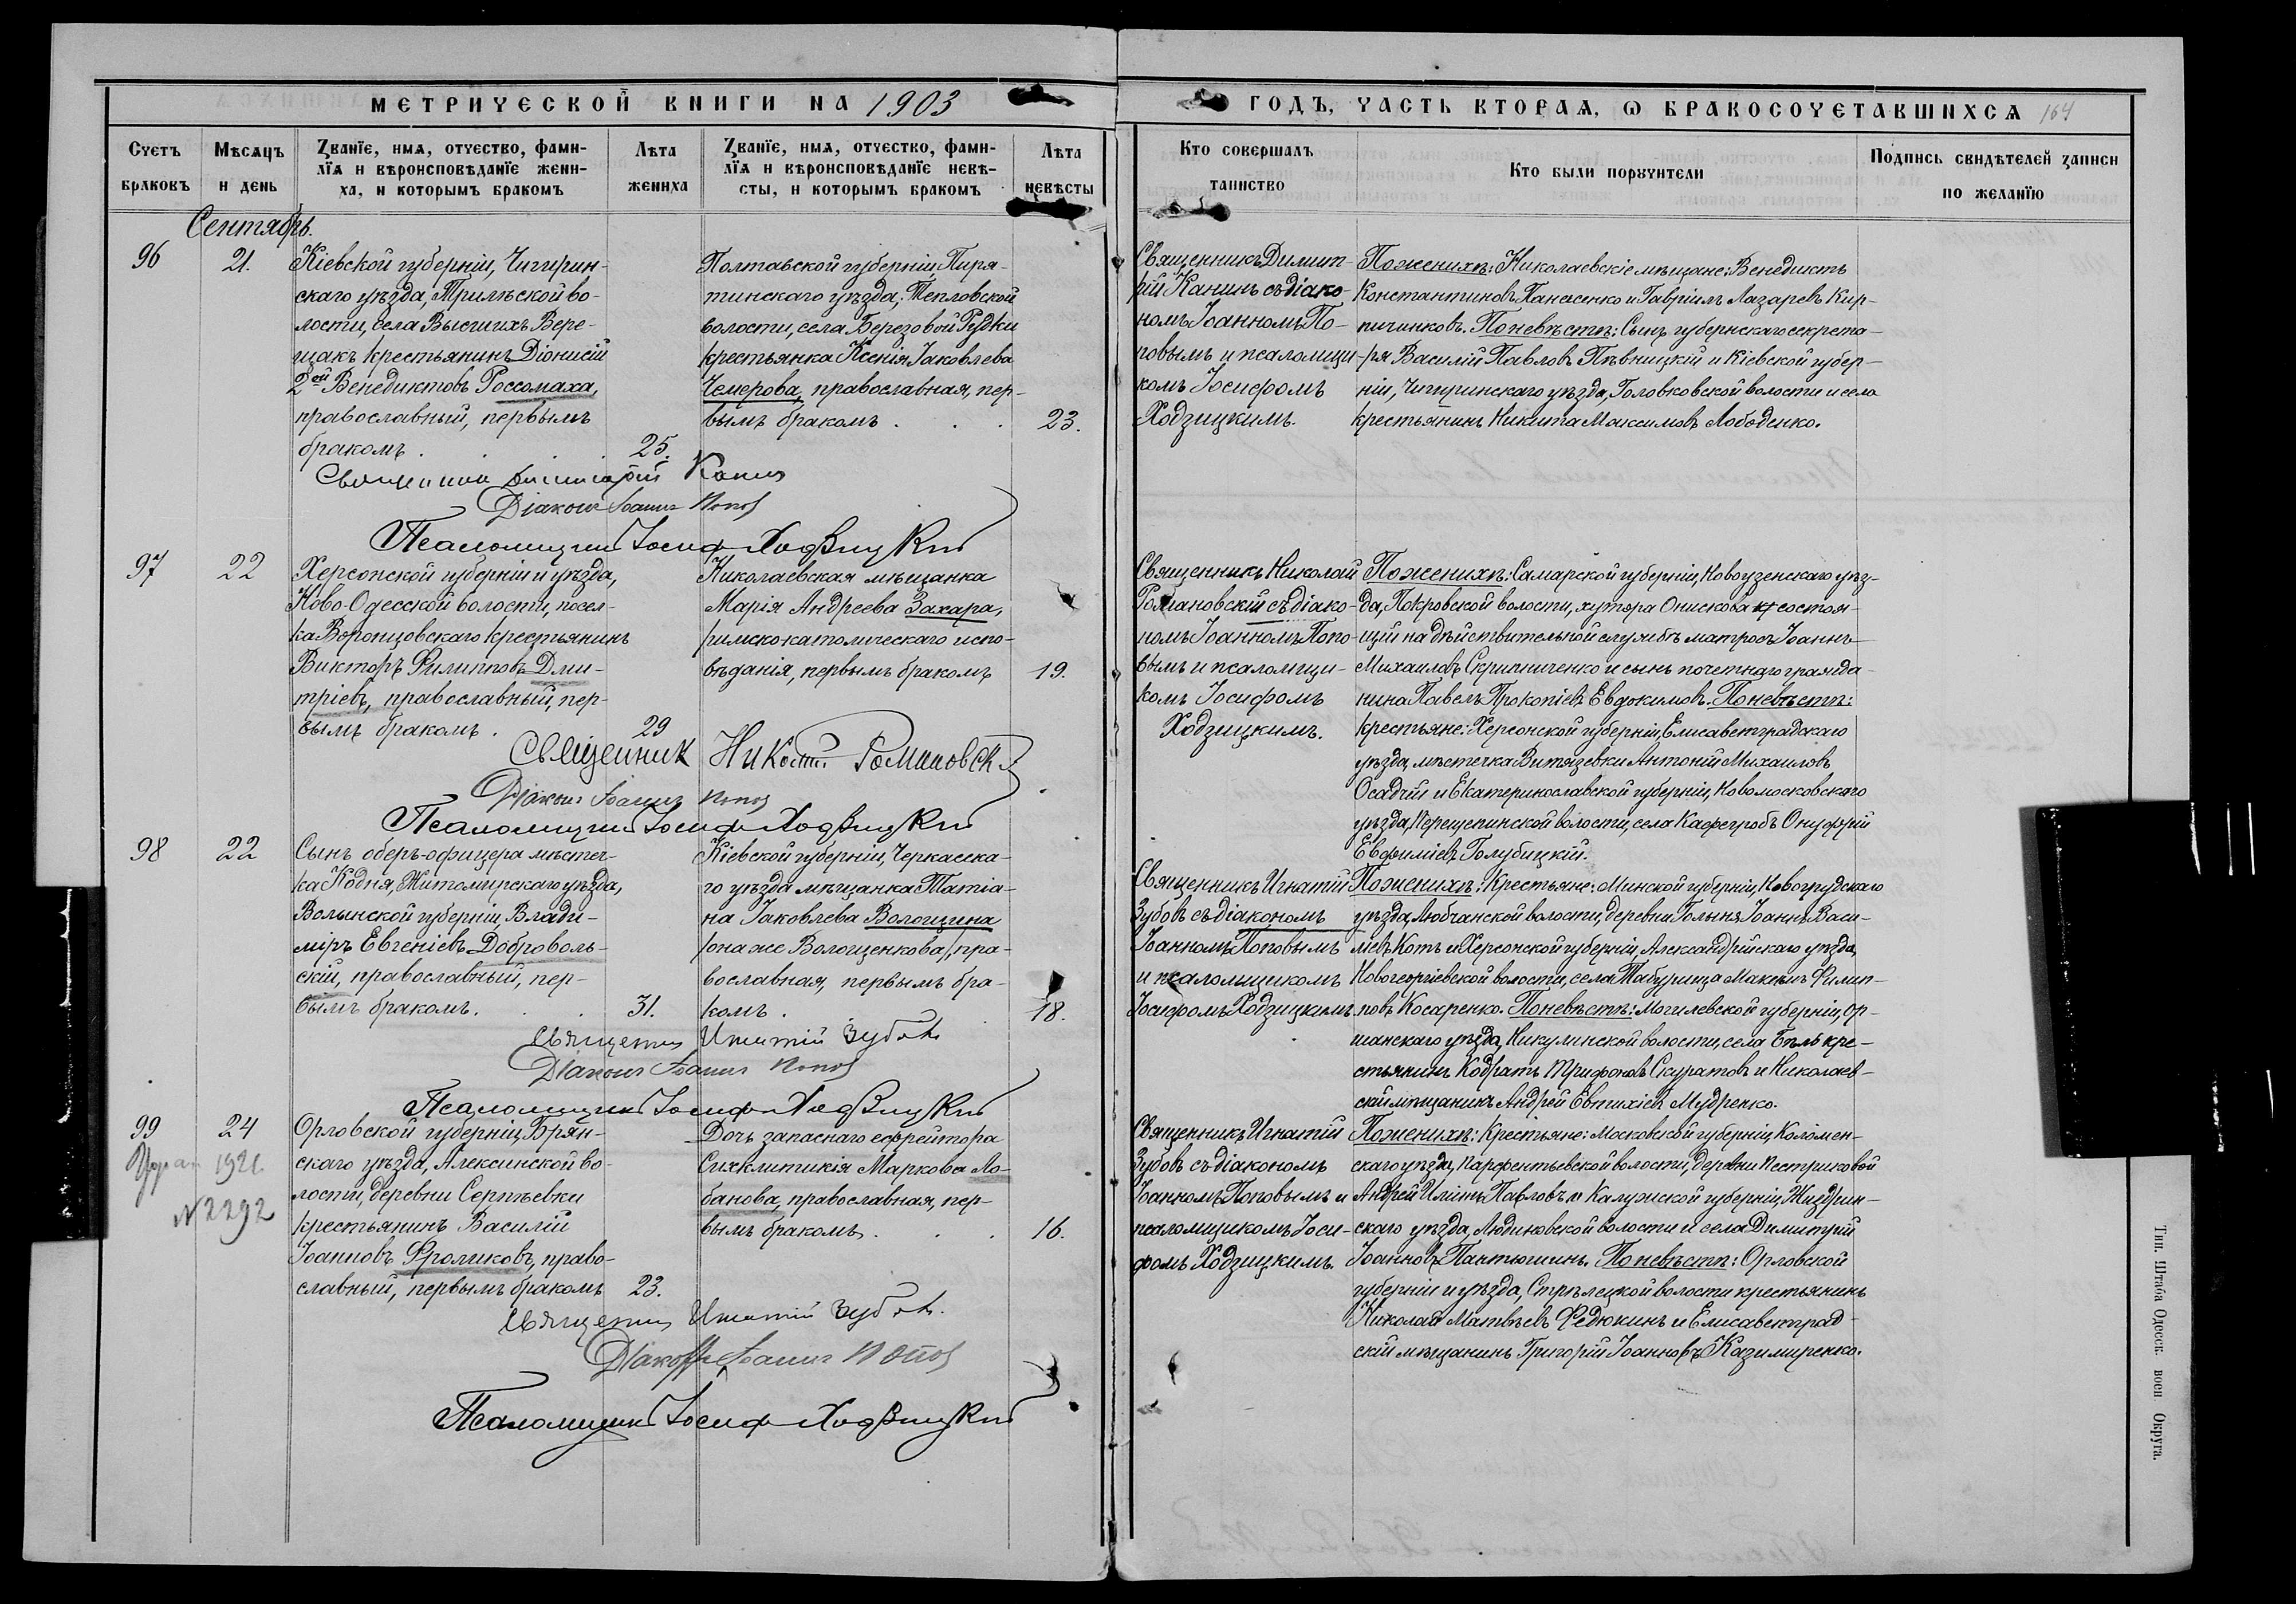 МЕТРИЧЕСКОЙ КНИГИ НА 1903
ГОДЪ, ЧАСТЬ ВТОРАЯ, Ѡ БРАКОСОЧЕТАВШИХСЯ 164
Счетъ браковъ
Мѣсяцъ и день
Званїе, имя, отчество, фами-
лїя и вѣроисповѣданїе жени-
ха, и которымъ бракомъ
Лѣта жениха
Званїе, имя, отчество, фами-
лїя и вѣроисповѣданїе невѣ-
сты, и которымъ бракомъ
Лѣта невѣсты
Кто совершалъ таинство
Кто были порꙋчители
Подпись свидѣтелей записи по желанїю
Сентябрь.
96
21.
Кіевской губерніи, Чигирин-
скаго уѣзда, Трилѣской во-
лости, села Высшихъ Вере-
щакъ крестьянинъ Діонисій
2ой Венедиктовъ Россомаха,
православный, первымъ
бракомъ . . . 25.
Полтавской губерніи, Пиря-
тинскаго уѣзда, Тепловской
волости, села Березовой Рудки
крестьянка Ксенія Іаковлева
Чемерова, православная, пер-
вымъ бракомъ . . . 23.
Священникъ Димит-
рій Канинъ съ діако-
номъ Іоанномъ По-
повымъ и псаломщи-
комъ Іосифомъ
Ходзицкимъ.
По женихѣ: Николаевскіе мѣщане: Венедиктъ
Константиновъ Панасенко и Гавріилъ Лазаревъ Кир-
пичниковъ. По невѣстѣ: Сынъ губернскаго секрета-
ря Василій Павловъ Пѣвницкій и Кіевской губер-
ніи, Чигиринскаго уѣзда, Головковской волости и села
крестьянинъ Никита Максимовъ Лободенко.
Священник Димитрій Канин
Діаконъ Іоаннъ Попов
Псаломщикъ Іосиф Ходзицкий
97
22
Херсонской губерніи и уѣзда,
Ново-Одесской волости, посел-
ка Воронцовскаго крестьянинъ
Викторъ Филипповъ Дми-
тріевъ, православный, пер-
вымъ бракомъ . 29
Николаевская мѣщанка
Марія Андреева Захара,
римско-католическаго испо-
вѣданія, первымъ бракомъ 19.
Священникъ Николай
Романовскій съ діако-
номъ Іоанномъ Попо-
вымъ и псаломщи-
комъ Іосифомъ
Ходзицкимъ.
По женихѣ: Самарской губерніи, Новоузенскаго уѣз-
да, Покровской волости, хутора Онискова состоя-
щій на дѣйствительной службѣ матросъ Іоаннъ
Михаиловъ Скрипниченко и сынъ почетнаго гражда-
нина Павелъ Прокопіевъ Евдокимовъ. По невѣстѣ:
крестьяне: Херсонской губерніи, Елисаветградскаго
уѣзда, мѣстечка Витязевки Антоній Михаиловъ
Осадчій и Екатеринославской губерніи, Новомосковскаго
уѣзда, Перещепинской волости, села Онуфрій
Евфиміевъ Голубицкій.
Священник Николай Романовскій
Діаконъ Іоаннъ Попов
Псаломщикъ Іосиф Ходзицкий
98
22
Сынъ оберъ-офицера мѣстеч-
ка Кодня, Житомирскаго уѣзда,
Волынской губерніи, Влади-
міръ Евгеніевъ Доброволь-
скій, православный, пер-
вымъ бракомъ. . . 31.
Кіевской губерніи, Черкасска-
го уѣзда мѣщанка Татіа-
на Іаковлева Волощина
/она же Волощенкова/, пра-
вославная, первымъ бра-
комъ . . 18.
Священникъ Игнатій
Зубовъ съ діакономъ
Іоанномъ Поповымъ
и псаломщикомъ
Іосифомъ Ходзицкимъ
По женихѣ: Крестьяне: Минской губерніи, Новогрудскаго
уѣзда, Любчанской волости, деревни Голыня Іоаннъ Васи-
ліевъ Котъ и Херсонской губерніи, Александрійскаго уѣзда,
Новогеоргіевской волости, села Табурища Максимъ Филип-
повъ Косаренко. По невѣстѣ: Могилевской губерніи, Ор-
шанскаго уѣзда, Никулинской волости, села кре-
стьянинъ Кодратъ Трифоновъ Скуратовъ и Николаев-
скій мѣщанинъ Андрей Евтихіевъ Мудренко.
Священник Игнатій Зубовъ
Діаконъ Іоаннъ Попов
Псаломщикъ Іосиф Ходзицкий
99
24
1921
N 2292
Орловской губерніи, Брян-
скаго уѣзда, Алексинской во-
лости, деревни Сергѣевки
крестьянинъ Василій
Іоанновъ Фроликовъ, право-
славный, первымъ бракомъ 23.
Дочь запаснаго ефрейтора
Сигклитикія Маркова Ло-
банова, православная, пер-
вымъ бракомъ . . . 16.
Священникъ Игнатій
Зубовъ съ діакономъ
Іоанномъ Поповымъ и
псаломщикомъ Іоси-
фомъ Ходзицкимъ.
По женихѣ: Крестьяне: Московской губерніи, Коломен-
скаго уѣзда, Парфентьевской волости, деревни Пестриковой
Андрей Иліинъ Павловъ и Калужской губерніи, Жиздрин-
скаго уѣзда, Людиновской волости и села Димитрій
Іоанновъ Пантюшинъ. По невѣстѣ: Орловской
губерніи и уѣзда, Стрѣлецкой волости крестьянинъ
Николай Матвѣевъ Федюкинъ и Елисаветград-
скій мѣщанинъ Григорій Іоанновъ Казимиренко.
Священник Игнатій Зубовъ.
Діаконъ Іоаннъ Попов
Псаломщикъ Іосиф Ходзицкий
Тип. Штаба Одесск. воен. Округа.